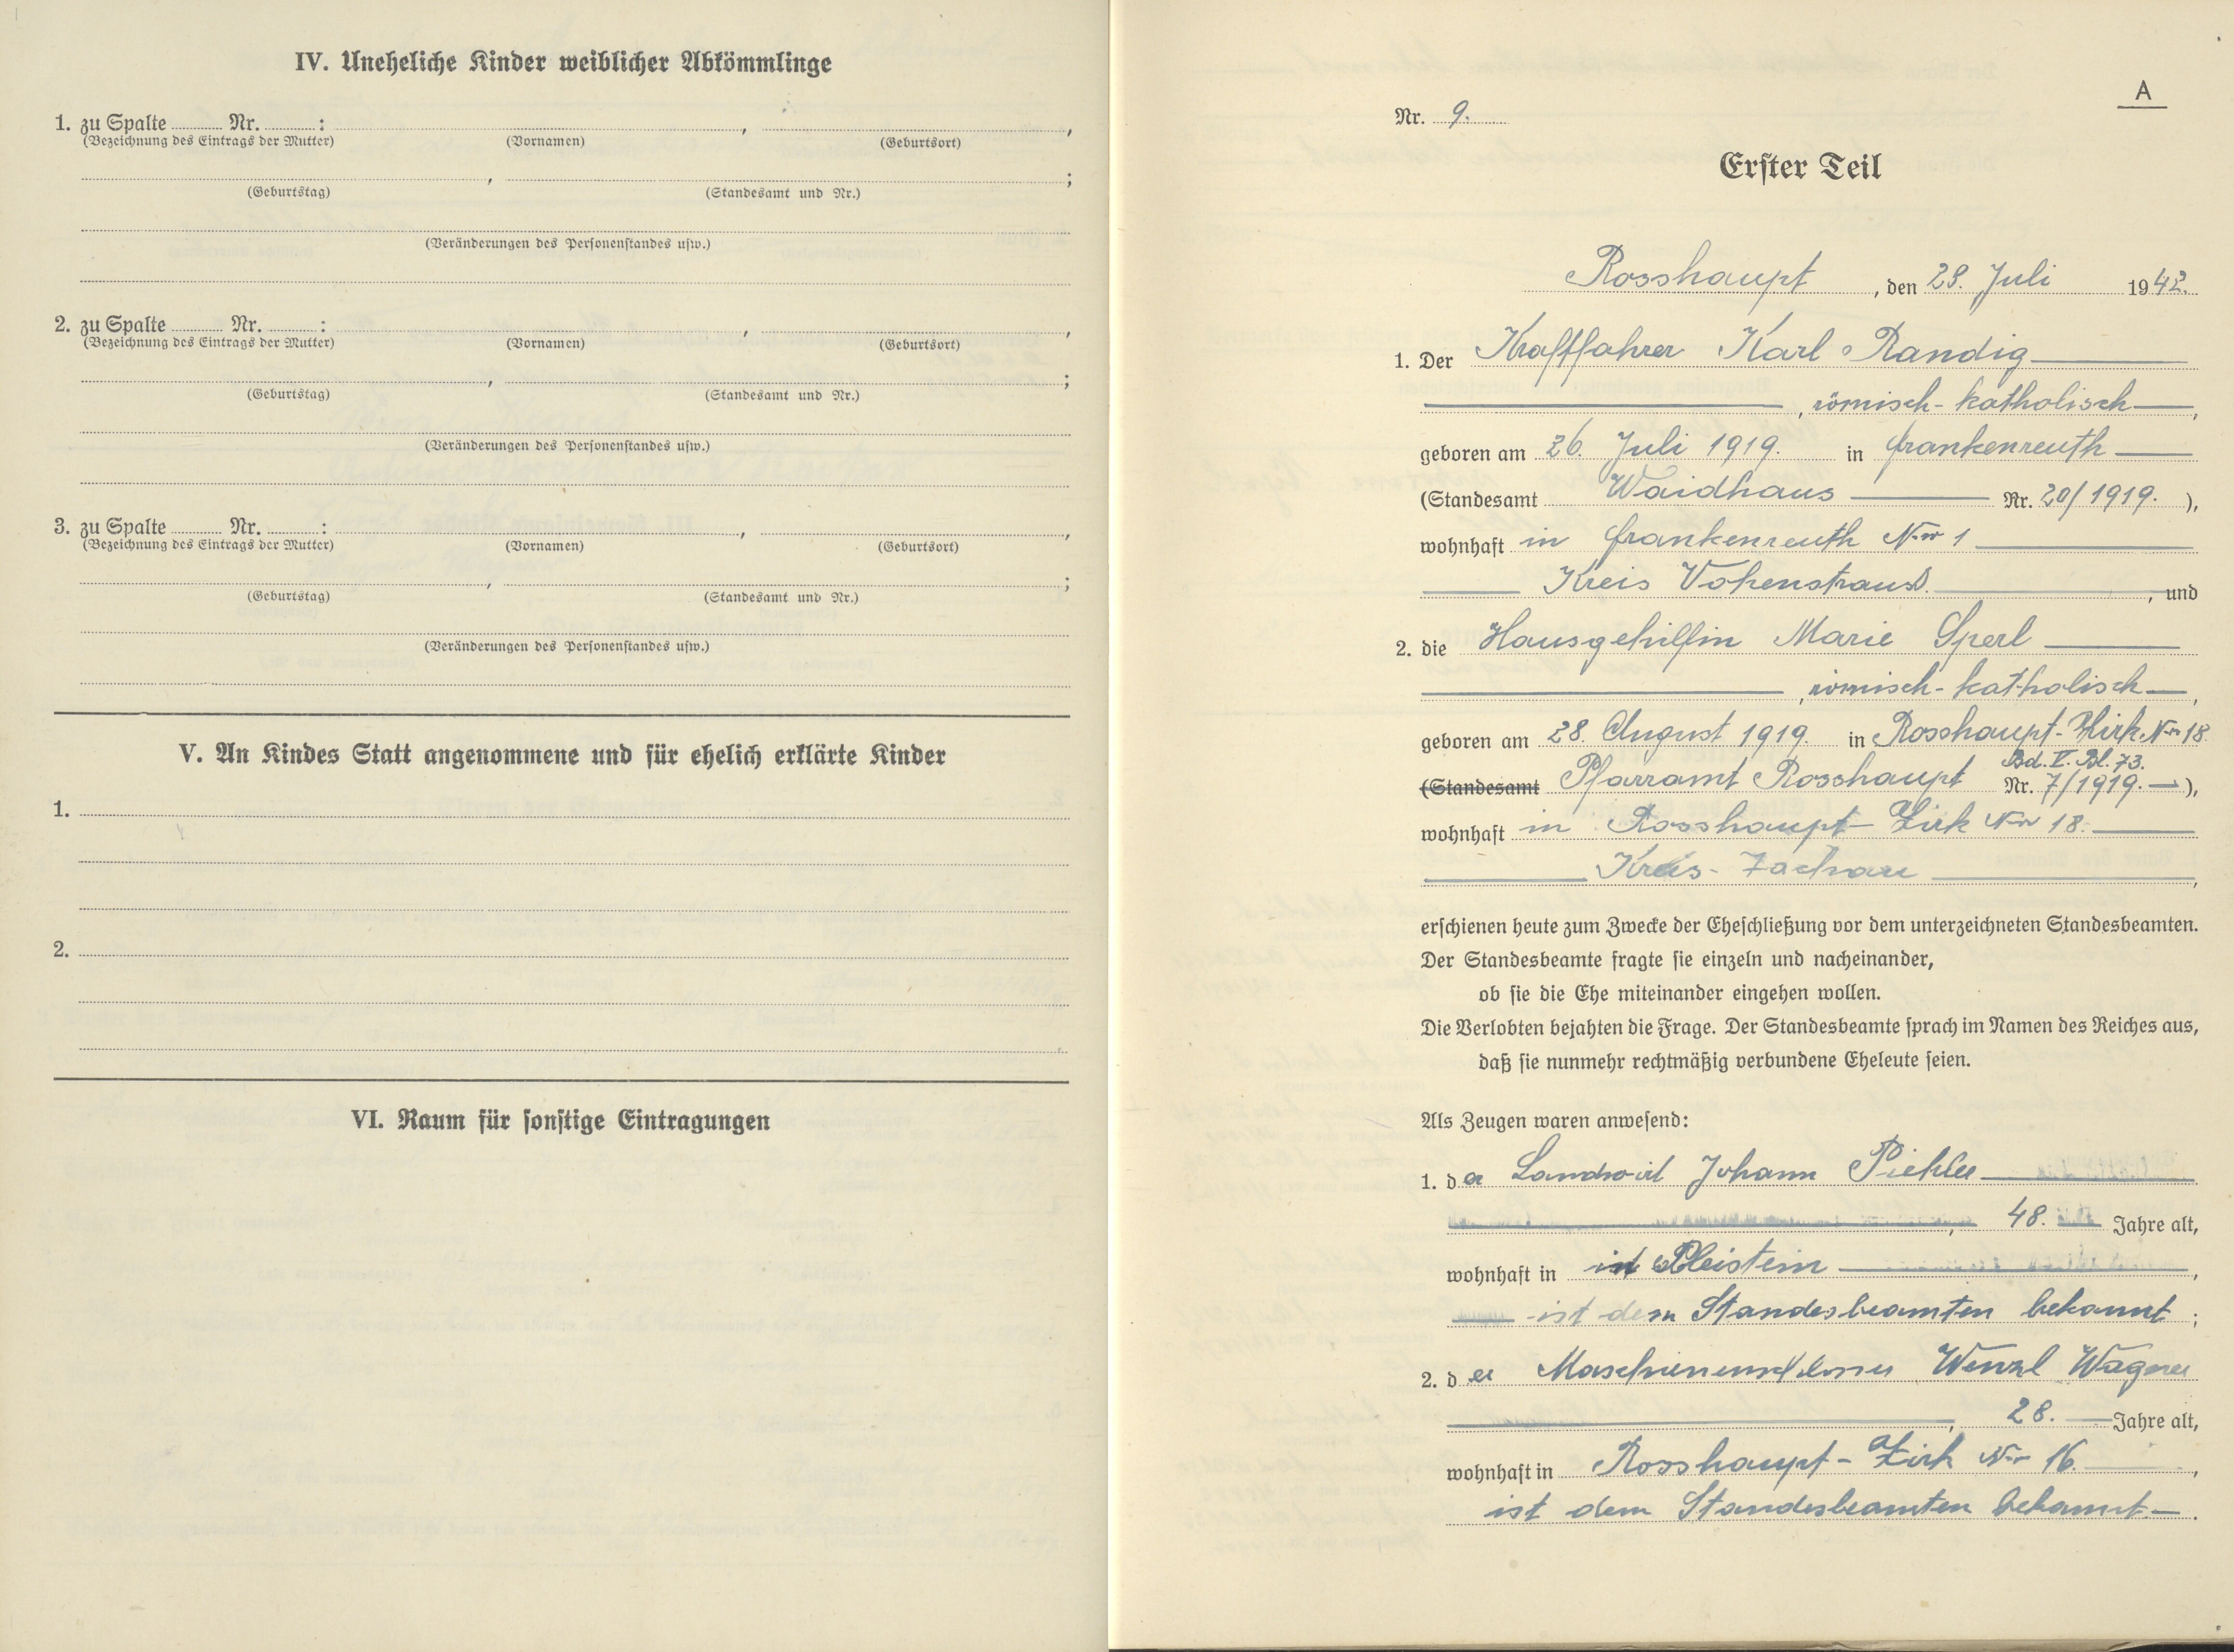 IV. Uneheliche Kinder weiblicher Abkömmlinge
1. zu Spalte ........ Nr. ........ : ........ , ........ ,
(Bezeichnung des Eintrags der Mutter) (Vornamen) (Geburtsort)
........ , ........ ;
(Geburtstag) (Standesamt und Nr.)
(Veränderungen des Personenstandes usw.)
2. zu Spalte ........ Nr. ........ : ........ , ........ ,
(Bezeichnung des Eintrags der Mutter) (Vornamen) (Geburtsort)
........ , ........ ;
(Geburtstag) (Standesamt und Nr.)
(Veränderungen des Personenstandes usw.)
3. zu Spalte ........ Nr. ........ : ........ , ........ ,
(Bezeichnung des Eintrags der Mutter) (Vornamen) (Geburtsort)
........ , ........ ;
(Geburtstag) (Standesamt und Nr.)
(Veränderungen des Personenstandes usw.)
V. An Kindes Statt angenommene und für ehelich erklärte Kinder
1.
2.
VI. Raum für sonstige Eintragungen
A
Nr. 9.
Erster Teil
Rosshaupt, den 28. Juli 1942.
1. Der Kraftfahrer Karl Randig
, römisch-katholisch,
geboren am 26. Juli 1919. in Frankenreuth
(Standesamt Waidhaus Nr. 20/1919. ),
wohnhaft in Frankenreuth Nr 1
Kreis Vohenstrauß. , und
2. die Hausgehilfin Marie Sperl
, römisch-katholisch,
geboren am 28. August 1919. in Rosshaupt- Nr 18
Bd. V. Bl. 73.
(Standesamt Pfarramt Rosshaupt Nr. 7/1919. ),
wohnhaft in Rosshaupt- Nr 18.
Kreis- Tachau ,
erschienen heute zum Zwecke der Eheschließung vor dem unterzeichneten Standesbeamten.
Der Standesbeamte fragte sie einzeln und nacheinander,
ob sie die Ehe miteinander eingehen wollen.
Die Verlobten bejahten die Frage. Der Standesbeamte sprach im Namen des Reiches aus,
daß sie nunmehr rechtmäßig verbundene Eheleute seien.
Als Zeugen waren anwesend:
1. der Landwirt Johann
, 48. Jahre alt,
wohnhaft in in Pleistein ,
ist dem Standesbeamten bekannt ;
2. der Maschienenschlosser Wenzl Wagner
, 28. Jahre alt,
wohnhaft in Rosshaupt- Nr 16. ,
ist dem Standesbeamten bekannt.